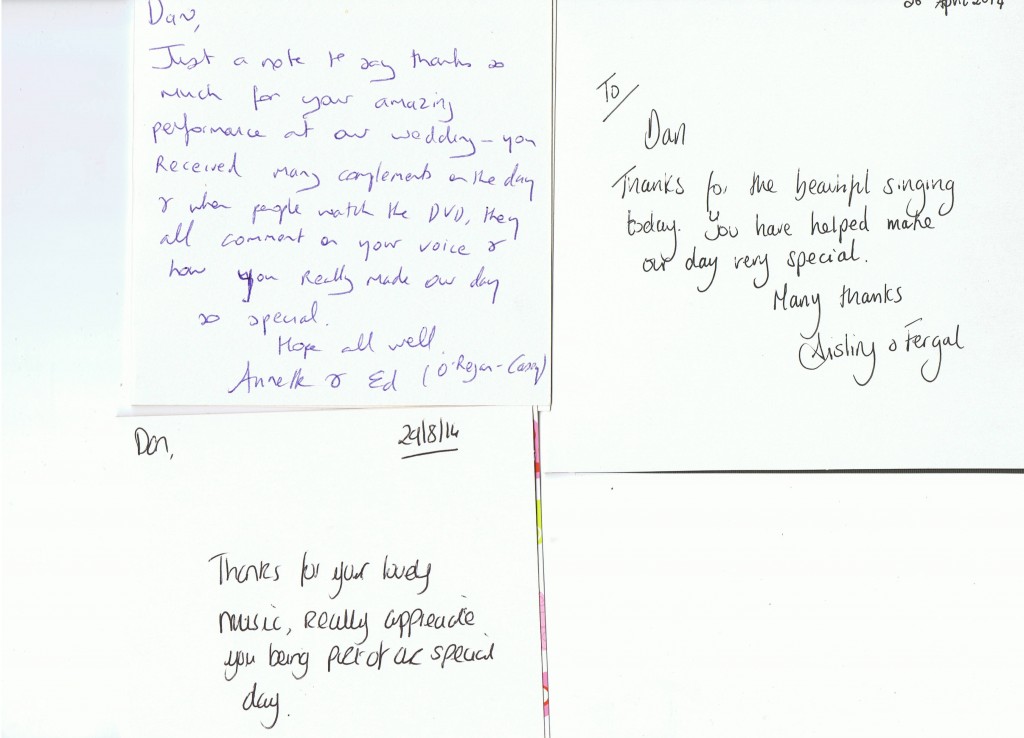 Dan,
Just a note to say thanks so
much for your amazing
performance at our wedding – you
Received many complements on the day
& when people watch the DVD, they
all comment on your voice &
how you Really made our day
so special.
Hope all well.
Annette & Ed (O'Regan-Casey)
26 April 2014
To/
Dan
Thanks for the beautiful singing
today. You have helped make
our day very special.
Many thanks
Aisling & Fergal
Dan,
29/8/14
Thanks for your lovely
music, Really appreciate
you being part of our special
day.